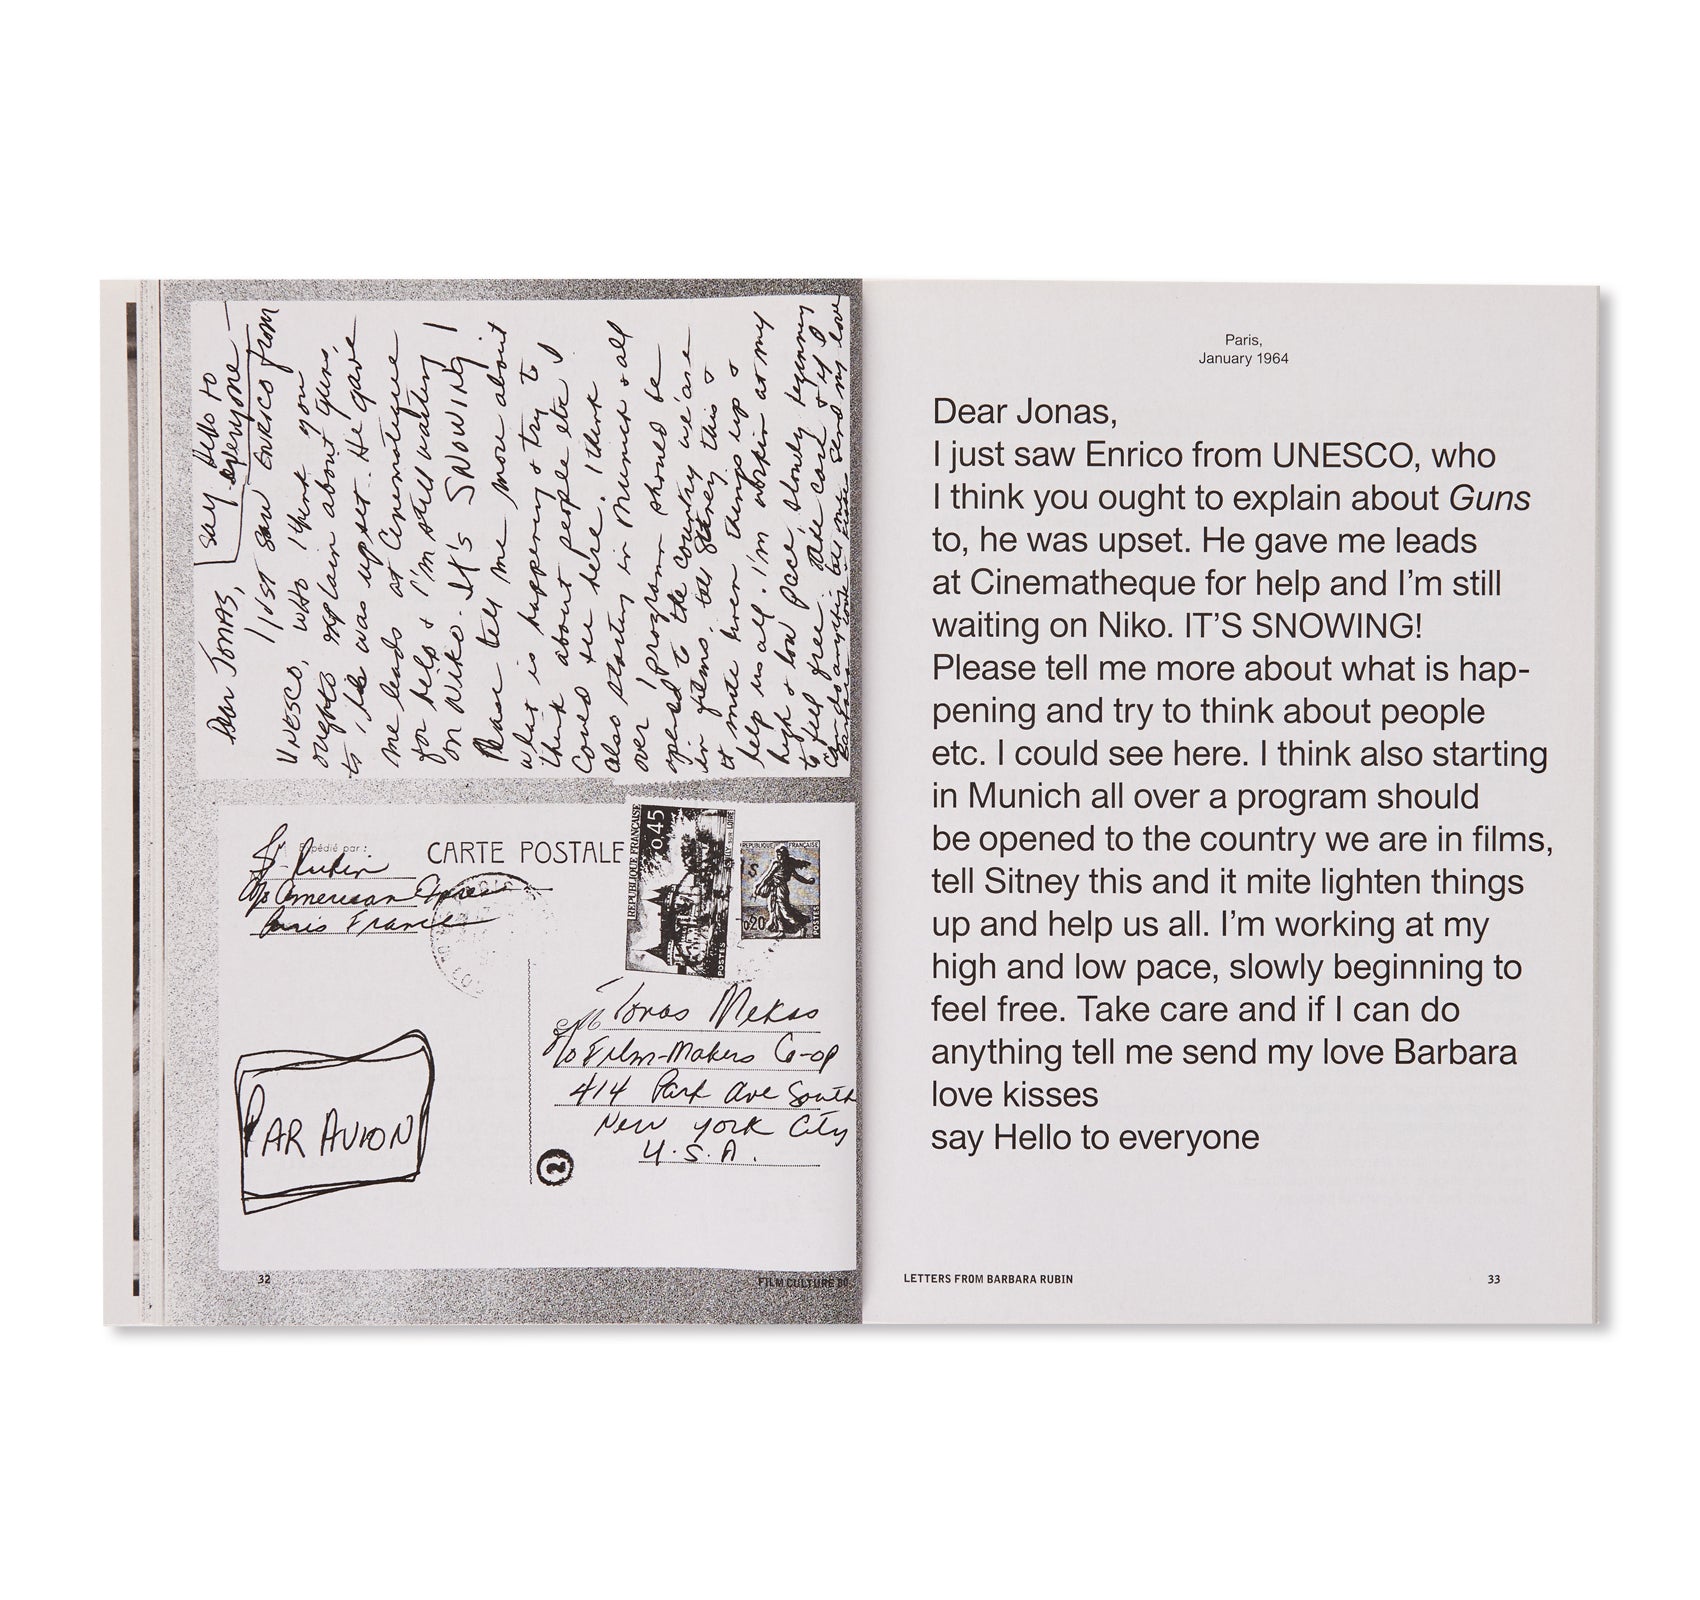 say Hello to
everyone —
Dear Jonas,
I just saw Enrico from
UNESCO, who I think you
ought to explain about Guns,
to, he was upset. He gave
me leads at Cinematheque
for help & I'm still waiting
on Niko. It's SNOWING!
Please tell me more about
what is happening & try to
think about people etc. I
could see here. I think
also starting in Munich & all
over a program should be
opened to the country we are
in films, tell Sitney this &
it mite lighten things up &
help us all. I'm workin at my
high & low pace, slowly beginning
to feel free. Take care & if I
can do anything tell me send my love
Barbara love kisses
Expédié par :
CARTE POSTALE
B. Rubin
c/o American Express
Paris France
REPUBLIQUE FRANÇAISE
0,45
POSTES
REPUBLIQUE FRANÇAISE
0,20
POSTES
Jonas Mekas
c/o Film-Makers Co-op
414 Park Ave South
New York City
U.S.A.
PAR AVION
2
32
FILM CULTURE 80
Paris,
January 1964
Dear Jonas,
I just saw Enrico from UNESCO, who
I think you ought to explain about Guns
to, he was upset. He gave me leads
at Cinematheque for help and I'm still
waiting on Niko. IT'S SNOWING!
Please tell me more about what is hap-
pening and try to think about people
etc. I could see here. I think also starting
in Munich all over a program should
be opened to the country we are in films,
tell Sitney this and it mite lighten things
up and help us all. I'm working at my
high and low pace, slowly beginning to
feel free. Take care and if I can do
anything tell me send my love Barbara
love kisses
say Hello to everyone
LETTERS FROM BARBARA RUBIN
33